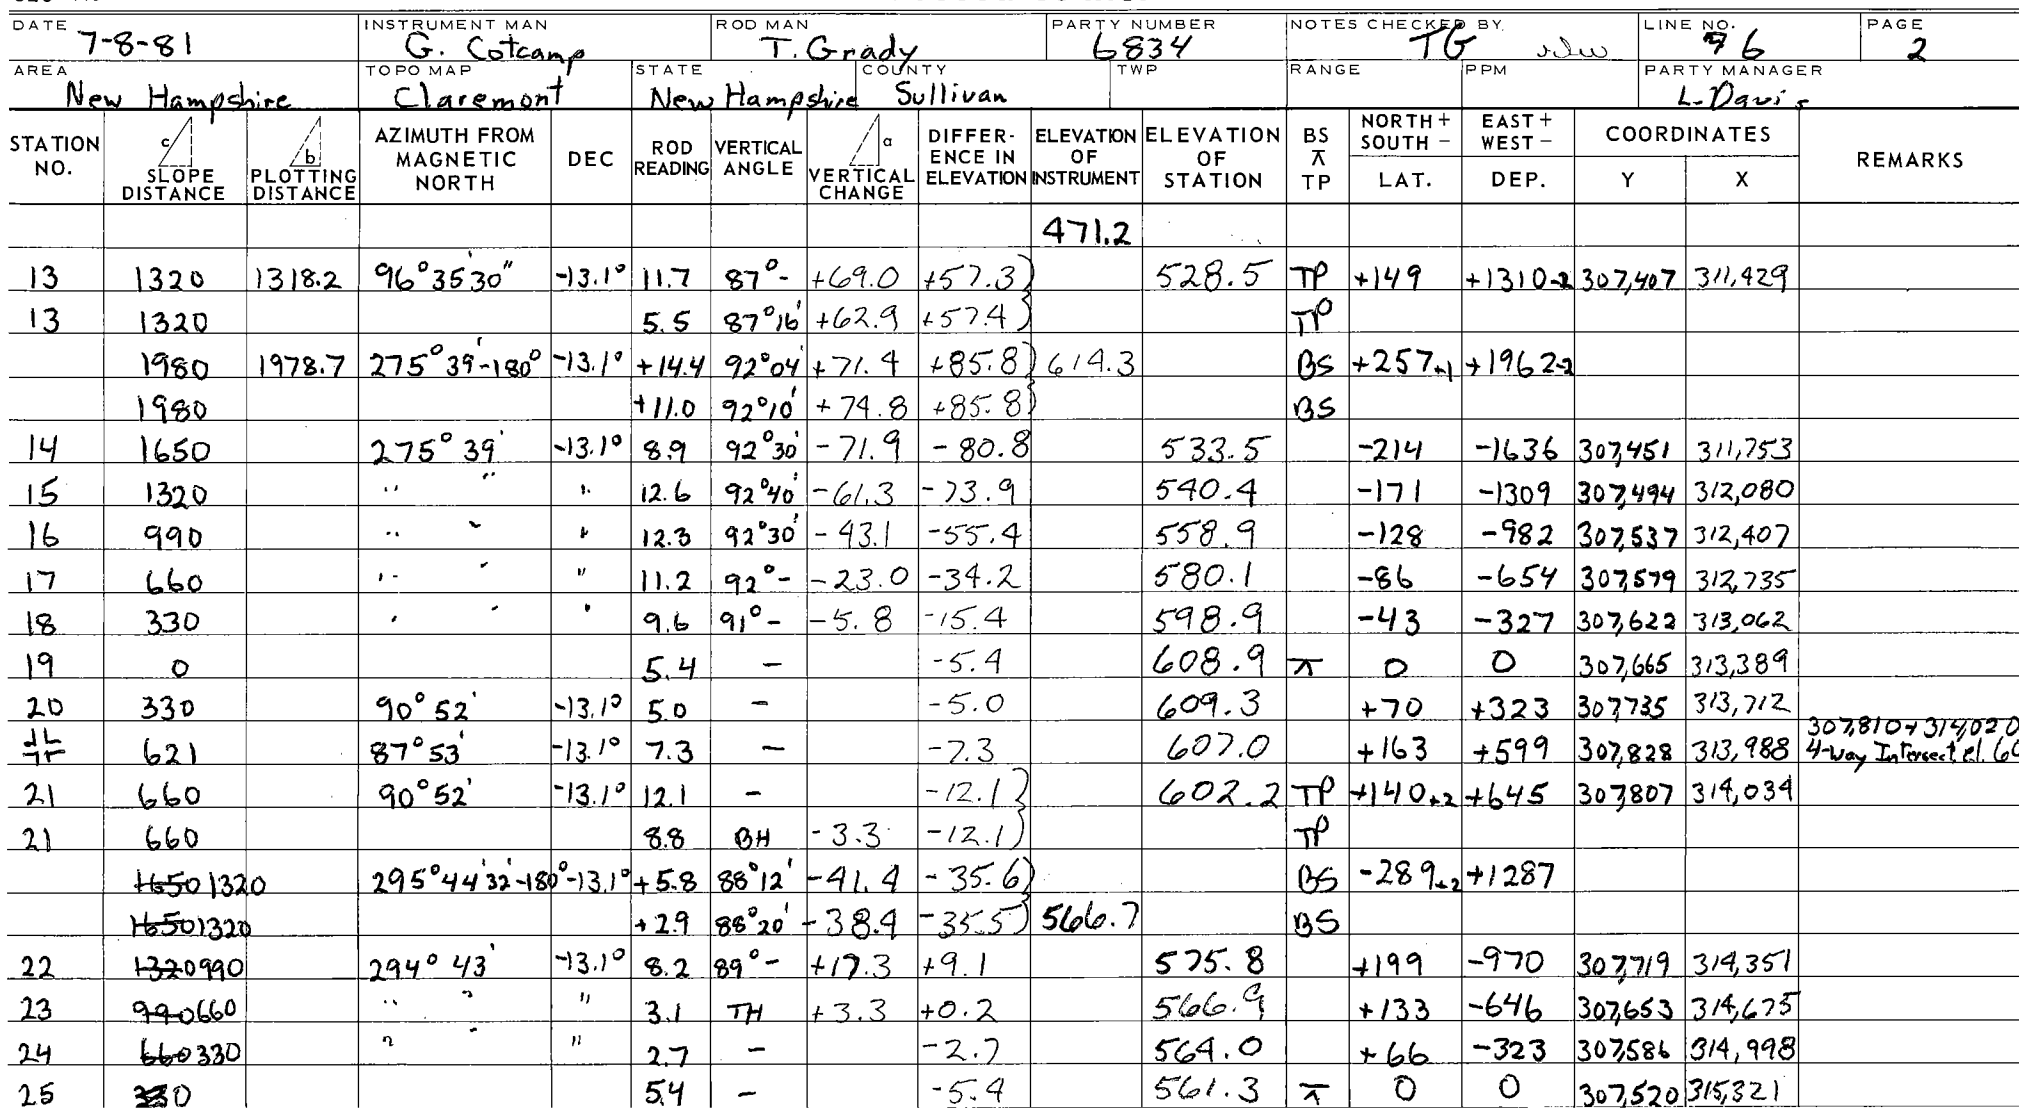 DATE 7-8-81 INSTRUMENT MAN G. Cotcamp ROD MAN T. Grady PARTY NUMBER 6834 NOTES CHECKED BY TG LINE NO. 6 PAGE 2
AREA New Hampshire TOPO MAP Claremont STATE New Hampshire COUNTY Sullivan TWP RANGE PPM PARTY MANAGER L. Davis
STATION NO. c SLOPE DISTANCE b PLOTTING DISTANCE AZIMUTH FROM MAGNETIC NORTH DEC ROD READING VERTICAL ANGLE a VERTICAL CHANGE DIFFER-ENCE IN ELEVATION ELEVATION OF INSTRUMENT ELEVATION OF STATION BS ⊼ TP NORTH + SOUTH - LAT. EAST + WEST - DEP. COORDINATES Y X REMARKS
471.2
13 1320 1318.2 96°35'30" -13.1° 11.7 87°- +69.0 +57.3) 528.5 TP +149 +1310-2 307,407 311,429
13 1320 5.5 87°16' +62.9 +57.4) TP
1980 1978.7 275°39'-180° -13.1° +14.4 92°04' +71.4 +85.8) 614.3 BS +257+1 +1962-2
1980 +11.0 92°10' +74.8 +85.8) BS
14 1650 275°39' -13.1° 8.9 92°30' -71.9 -80.8 533.5 -214 -1636 307,451 311,753
15 1320 " " " 12.6 92°40' -61.3 -73.9 540.4 -171 -1309 307,494 312,080
16 990 " " " 12.3 92°30' -43.1 -55.4 558.9 -128 -982 307,537 312,407
17 660 " " " 11.2 92°- -23.0 -34.2 580.1 -86 -654 307,579 312,735
18 330 " " " 9.6 91°- -5.8 -15.4 598.9 -43 -327 307,622 313,062
19 0 5.4 - -5.4 608.9 ⊼ 0 0 307,665 313,389
20 330 90°52' -13.1° 5.0 - -5.0 609.3 +70 +323 307,735 313,712
307,810+314,020
621 87°53' -13.1° 7.3 - -7.3 607.0 +163 +599 307,828 313,988 4-way Intersect el. 60
21 660 90°52' -13.1° 12.1 - -12.1) 602.2 TP +140+2 +645 307,807 314,034
21 660 8.8 BH -3.3 -12.1) TP
1650 1320 295°44'32"-180° -13.1° +5.8 88°12' -41.4 -35.6) BS -289+2 +1287
1650 1320 +2.9 88°20' -38.4 -35.5) 566.7 BS
22 1320 990 294°43' -13.1° 8.2 89°- +17.3 +9.1 575.8 +199 -970 307,719 314,351
23 990 660 " " " 3.1 TH +3.3 +0.2 566.9 +133 -646 307,653 314,675
24 660 330 " " " 2.7 - -2.7 564.0 +66 -323 307,586 314,998
25 330 0 5.4 - -5.4 561.3 ⊼ 0 0 307,520 315,321